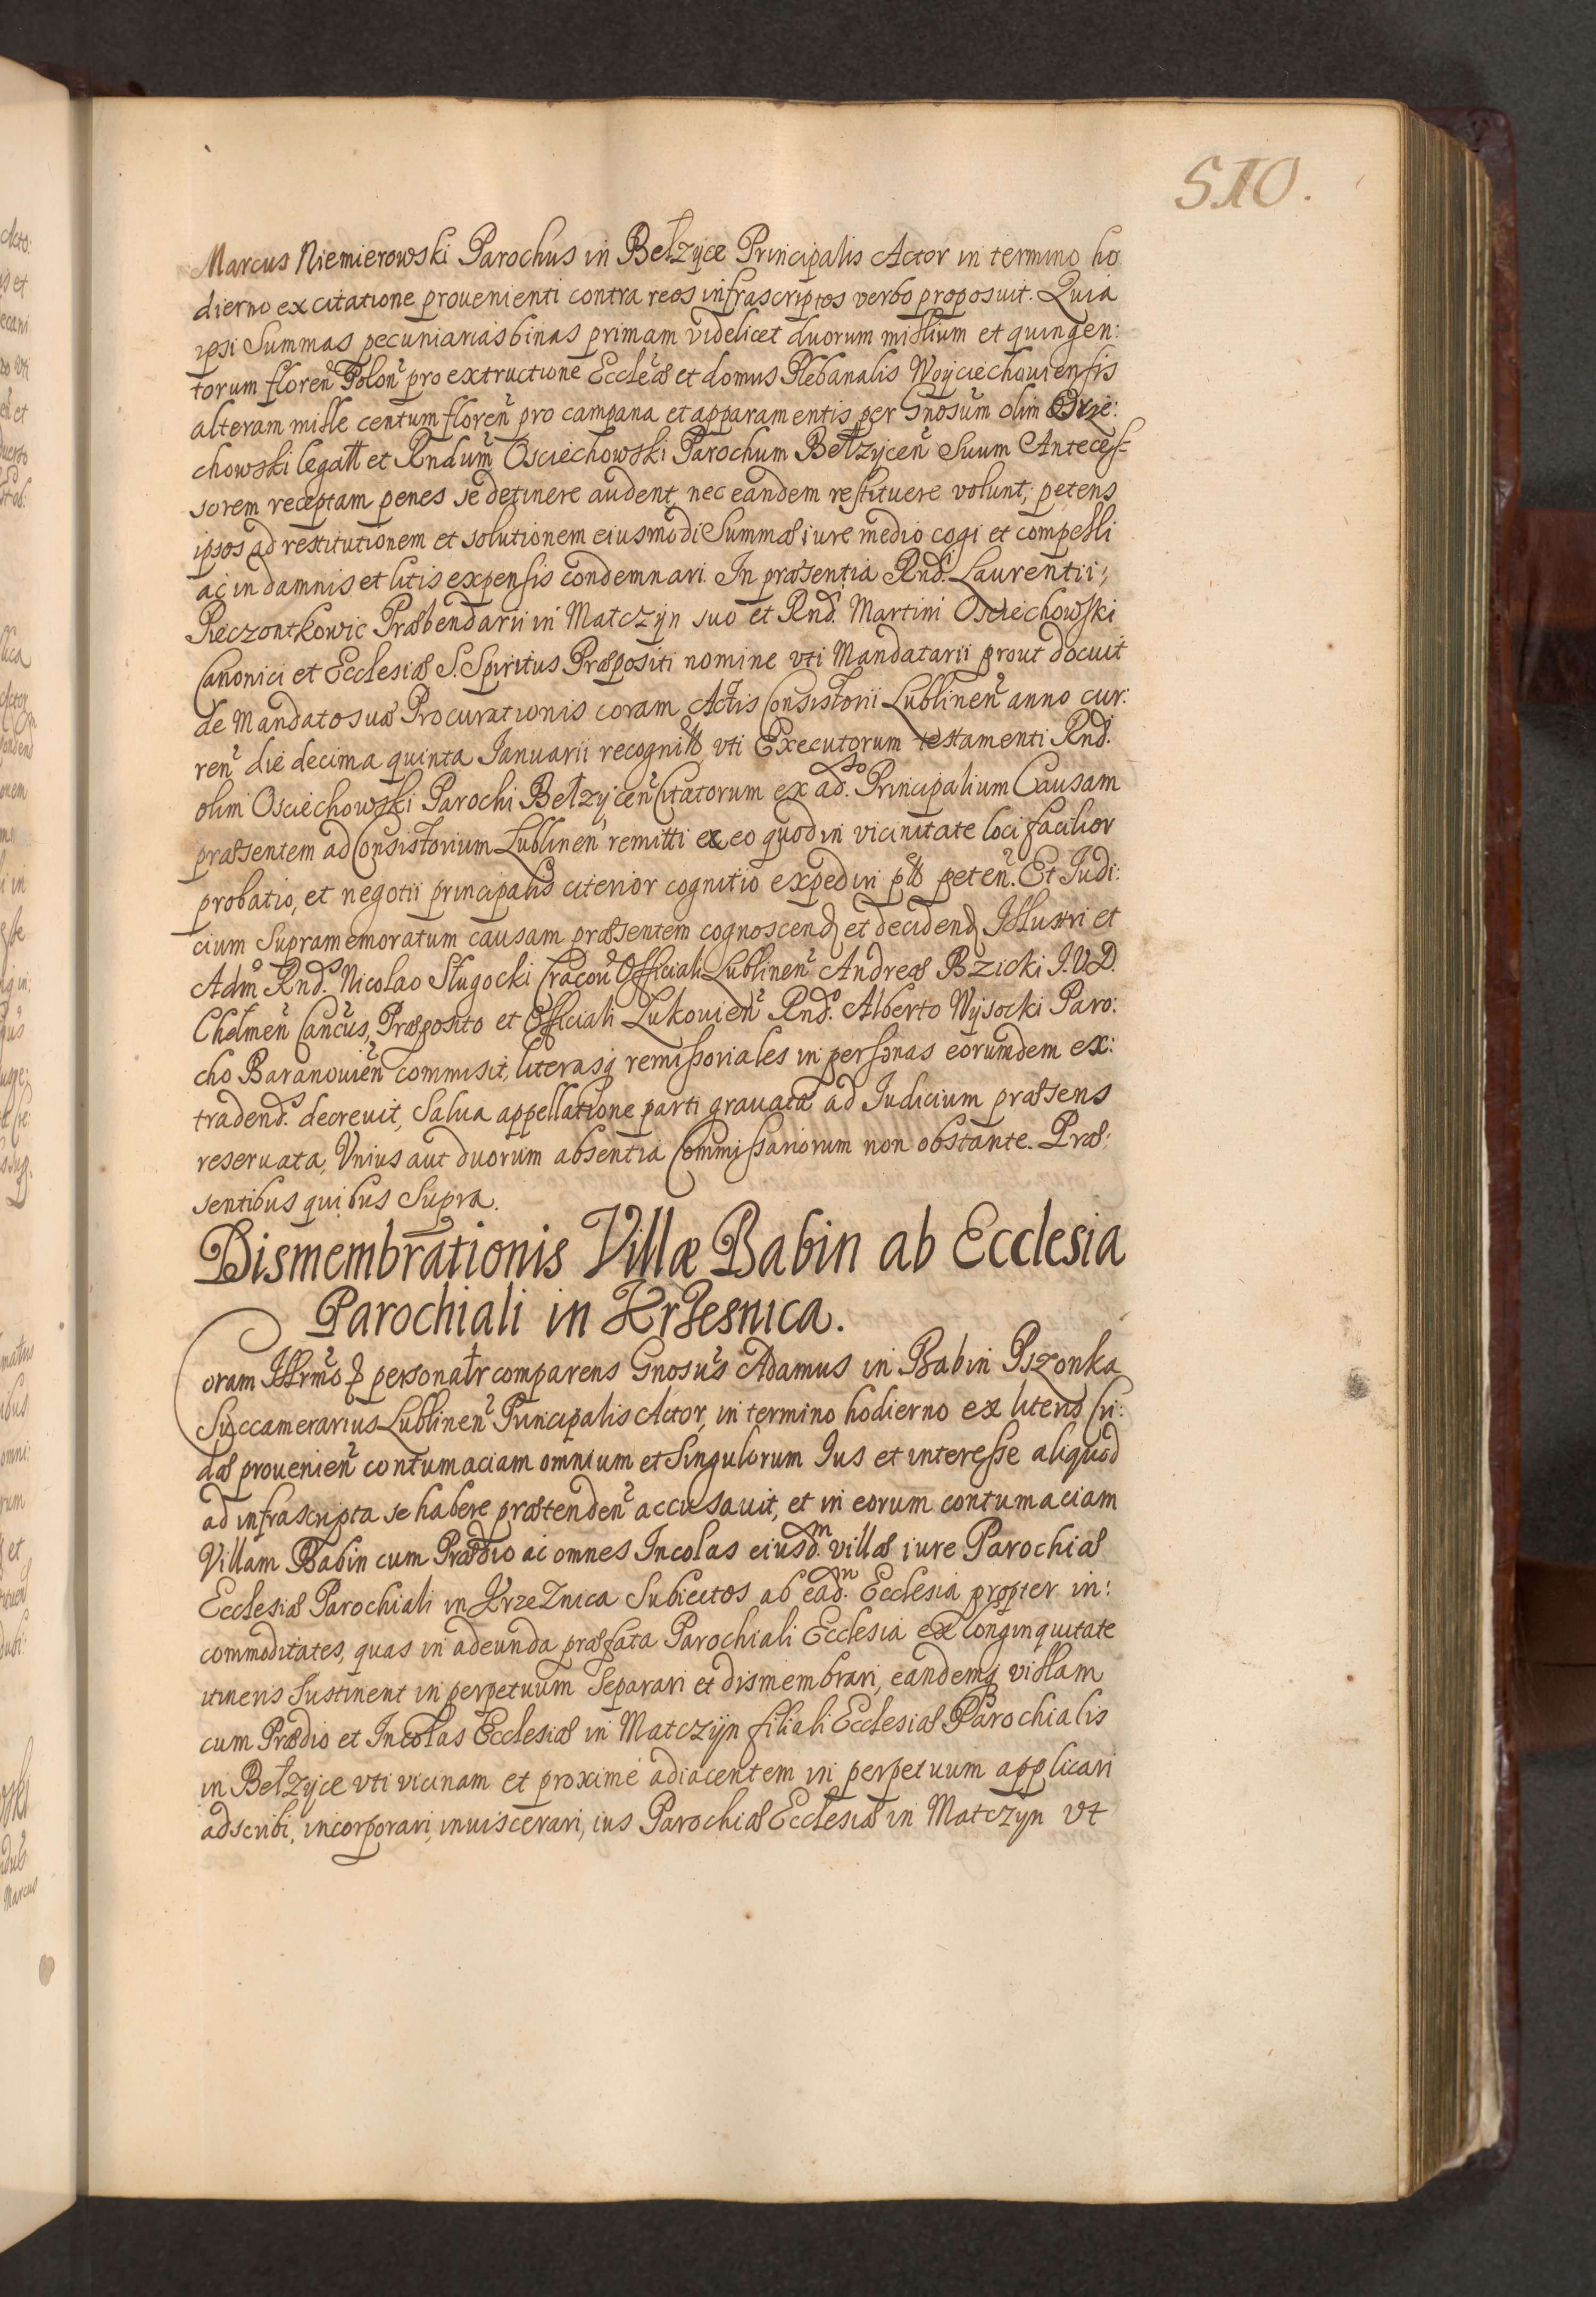 510.
Marcus Niemierowski Parochus in Bełzyce Principalis Actor in termino ho
dierno ex citatione prouenienti contra reos infrascriptos verbo proposuit. Quia
ipsi Summas pecuniarias binas primam videlicet duorum millium et quingen:
torum floren̄ Polon̄ pro extructione Eccleāe et domus Plebanalis Woyciechouiensis
alteram mille centum floren̄ pro campana et apparamentis per Gnosum olim Oscie:
chowski legatt et Rndum Osciechowski Parochum Bełzycen̄ Suum Antecess-
sorem receptam penes se detinere audent, nec eandem restituere volunt; petens
ipsos ad restitutionem et solutionem eiusmodi Summæ iure medio cogi et compelli
ac in damnis et litis expensis condemnari. In præsentia Rndi Laurentii,
Pieczontkowic Præbendarii in Matczyn suo et Rnd. Martini Osciechowski
Canonici et Ecclesiæ S. Spiritus Præpositi nomine vti Mandatarii prout docuit
de Mandato suæ Procurationis coram Actis Consistorii Lublinen̄ anno cur:
ren̄ die decima quinta Ianuarii recognito, vti Executorum testamenti Rnd.
olim Osciechowski Parochi Bełzycen̄ Citatorum ex adso. Principalium Causam
præsentem ad Consistorium Lublinen̄ remitti ex eo quod in vicinitate loci facilior
probatio, et negotii principalis citerior cognitio expediri petен̄. Et Iudi:
cium Supramemoratum causam præsentem cognoscend et decidend Illustri et
Admo Rndo. Nicolao Sługocki Cracou Officiali Lublinen̄ Andreæ Bzicki I.V.D.
Chełmen̄ Cancus, Præposito et Officiali Lukouien̄ Rndo. Alberto Wysocki Paro:
cho Baranouien̄ commisit, literasq remissoriales in personas eorumdem ex:
tradends. decreuit, Salua appellatione parti grauatæ ad Iudicium præsens
reseruata, Vnius aut duorum absentia Commissariorum non obstante. Præ:
sentibus quibus Supra.
Dismembrationis Villæ Babin ab Ecclesia
Parochiali in Krzesnica.
Coram Illrmo personalr comparens Gnosus Adamus in Babin Pszonka
Succamerarius Lublinen̄ Principalis Actor, in termino hodierno ex literis Cri:
dæ prouenien̄ contumaciam omnium et Singulorum Ius et interesse aliquod
ad infrascripta se habere prætenden̄ accusauit, et in eorum contumaciam
Villam Babin cum Prædio ac omnes Incolas eiusdm. villæ iure Parochiæ
Ecclesiæ Parochiali in Krzeznica Subiectos ab eadm. Ecclesia propter in:
commoditates, quas in adeunda præfata Parochiali Ecclesia ex longinquitate
itineris Sustinent in perpetuum Separari et dismembrari, eandemq villam
cum Prædio et Incolas Ecclesiæ in Matczyn filiali Ecclesiæ Parochialis
in Bełzyce vti vicinam et proxime adiacentem in perpetuum applicari
adscribi, incorporari, inuiscerari, ius Parochiæ Ecclesiæ in Matczyn vt